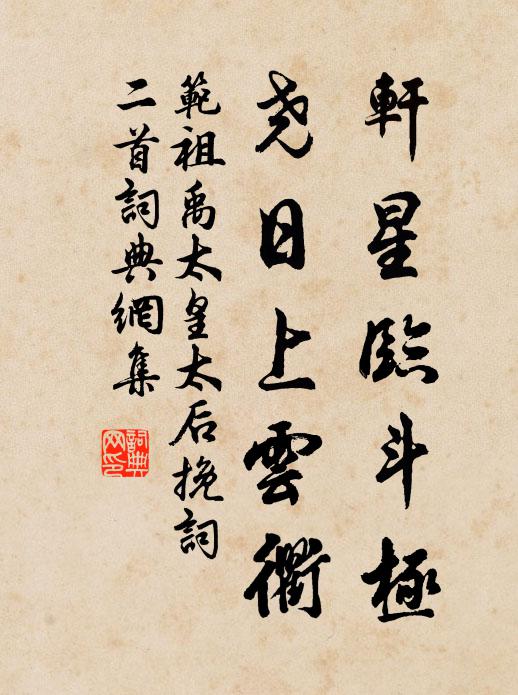 軒星臨斗極
尭日上雲衢
範祖禹太皇太后挽詞
二首詞典網集
詞典
网印